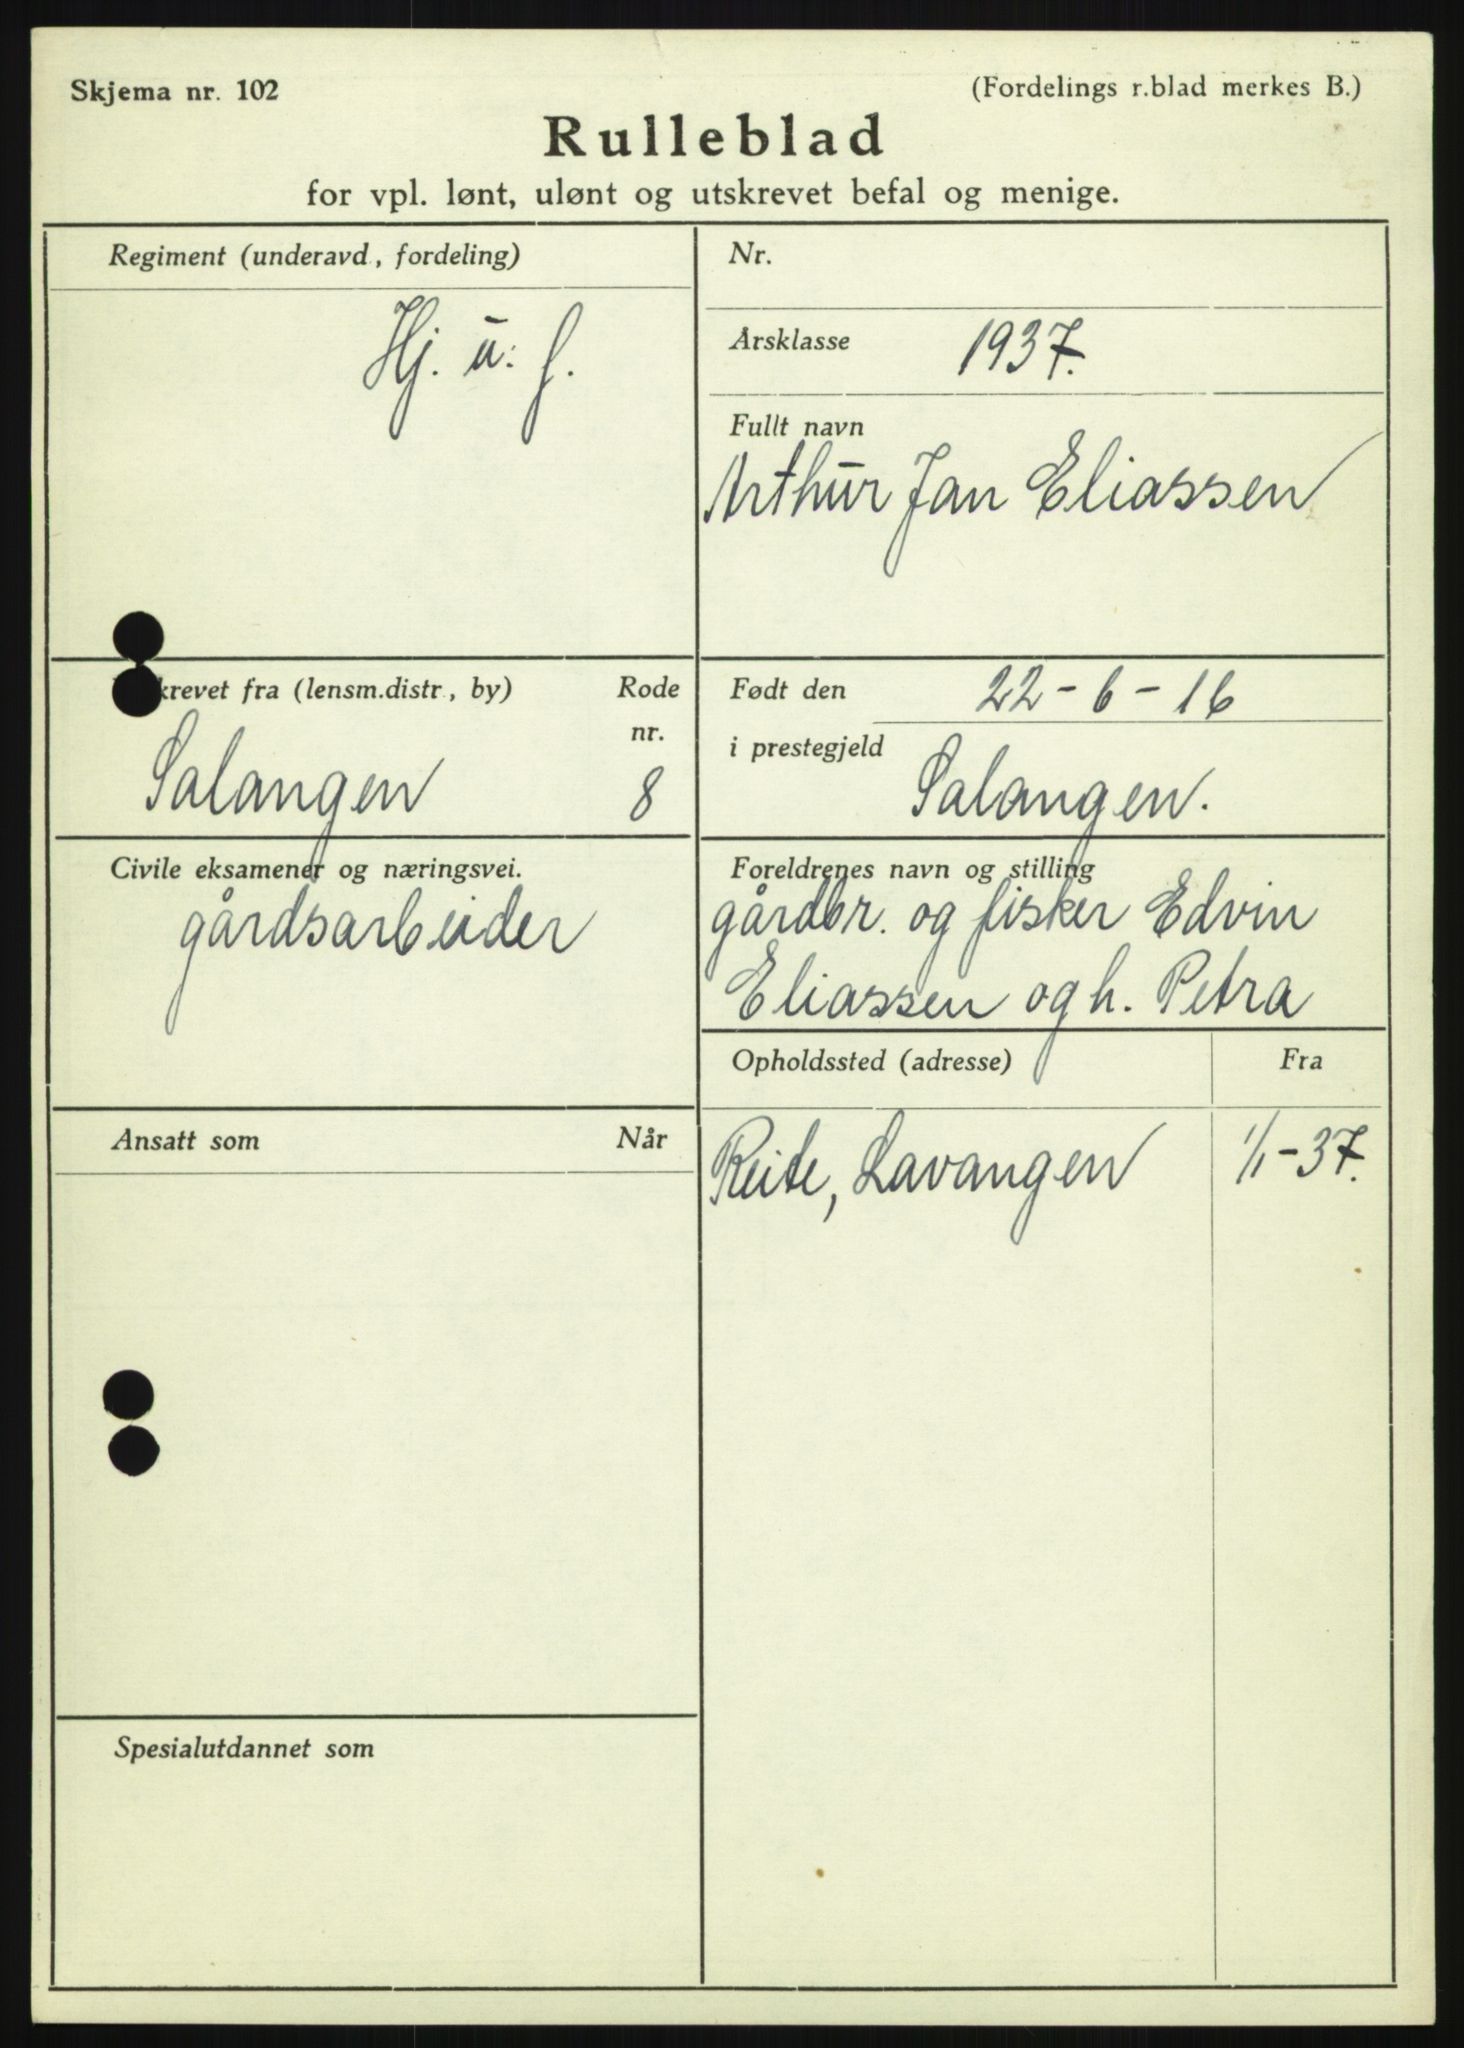 Skjema nr. 102
(Fordelings r.blad merkes B.)
Rulleblad
for vpl. lønt, ulønt og utskrevet befal og menige.
Regiment (underavd., fordeling)
Hj. u. f.
Nr.
Årsklasse 1937.
Fullt navn
Arthur Jan Eliassen
krevet fra (lensm.distr., by)
Rode
nr.
Salangen 8
Født den 22-6-16
i prestegjeld
Salangen.
Civile eksamener og næringsvei.
gårdsarbeider
Foreldrenes navn og stilling
gårdbr. og fisker Edvin
Eliassen og h. Petra
Opholdssted (adresse) Fra
Reite, Lavangen 1/1-37.
Ansatt som Når
Spesialutdannet som